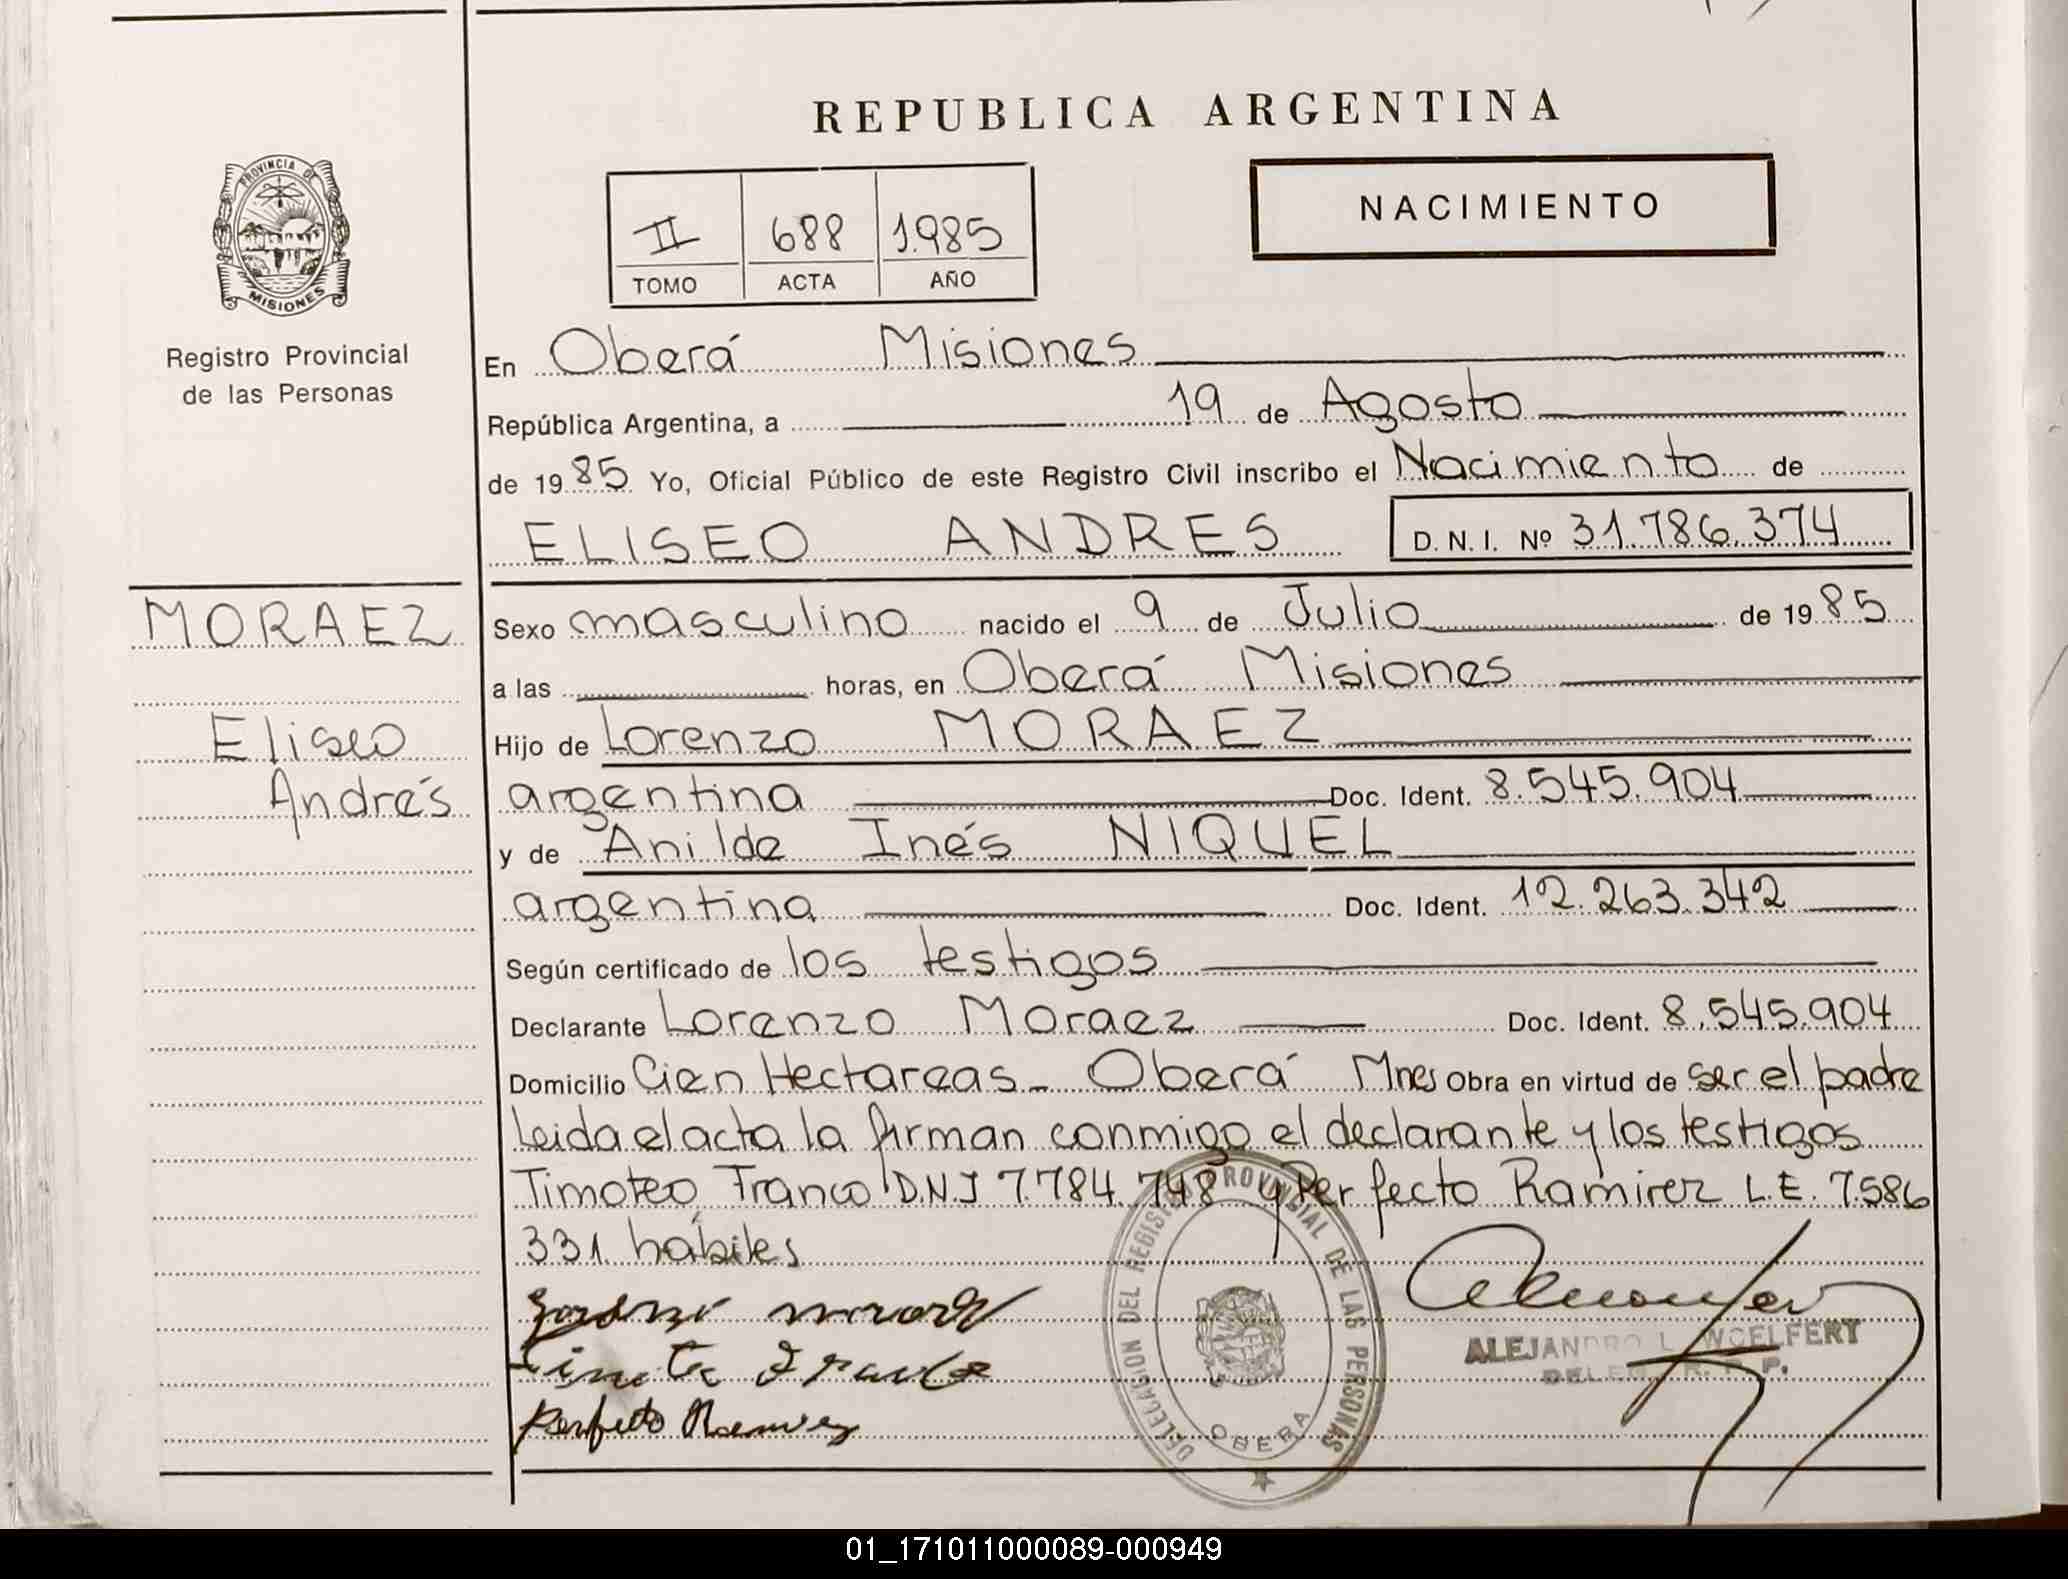 REPUBLICA ARGENTINA
PROVINCIA DE MISIONES
Registro Provincial
de las Personas
II 688 1.985
TOMO ACTA AÑO
NACIMIENTO
En Oberá Misiones
República Argentina, a 19 de Agosto
de 1985 Yo, Oficial Público de este Registro Civil inscribo el Nacimiento de
ELISEO ANDRES D.N.I. Nº 31.786.374
MORAEZ
Eliseo
Andrés
Sexo masculino nacido el 9 de Julio de 1985
a las horas, en Oberá Misiones
Hijo de Lorenzo MORAEZ
argentina Doc. Ident. 8.545.904
y de Anilda Inés NIQUEL
argentina Doc. Ident. 12.263.342
Según certificado de los testigos
Declarante Lorenzo Moraez Doc. Ident. 8.545.904
Domicilio Cien Hectareas - Oberá Mnes Obra en virtud de ser el padre
Leida el acta la firman conmigo el declarante y los testigos
Timoteo Franco D.N.I 7.784.748 y Perfecto Ramirez L.E. 7.586
331 hábiles
Perfecto Ramirez
DELEGACION DEL REGISTRO PROVINCIAL DE LAS PERSONAS
OBERA
ALEJANDRO L. WOELFERT
DELEG. R. P. P.
01_171011000089-000949